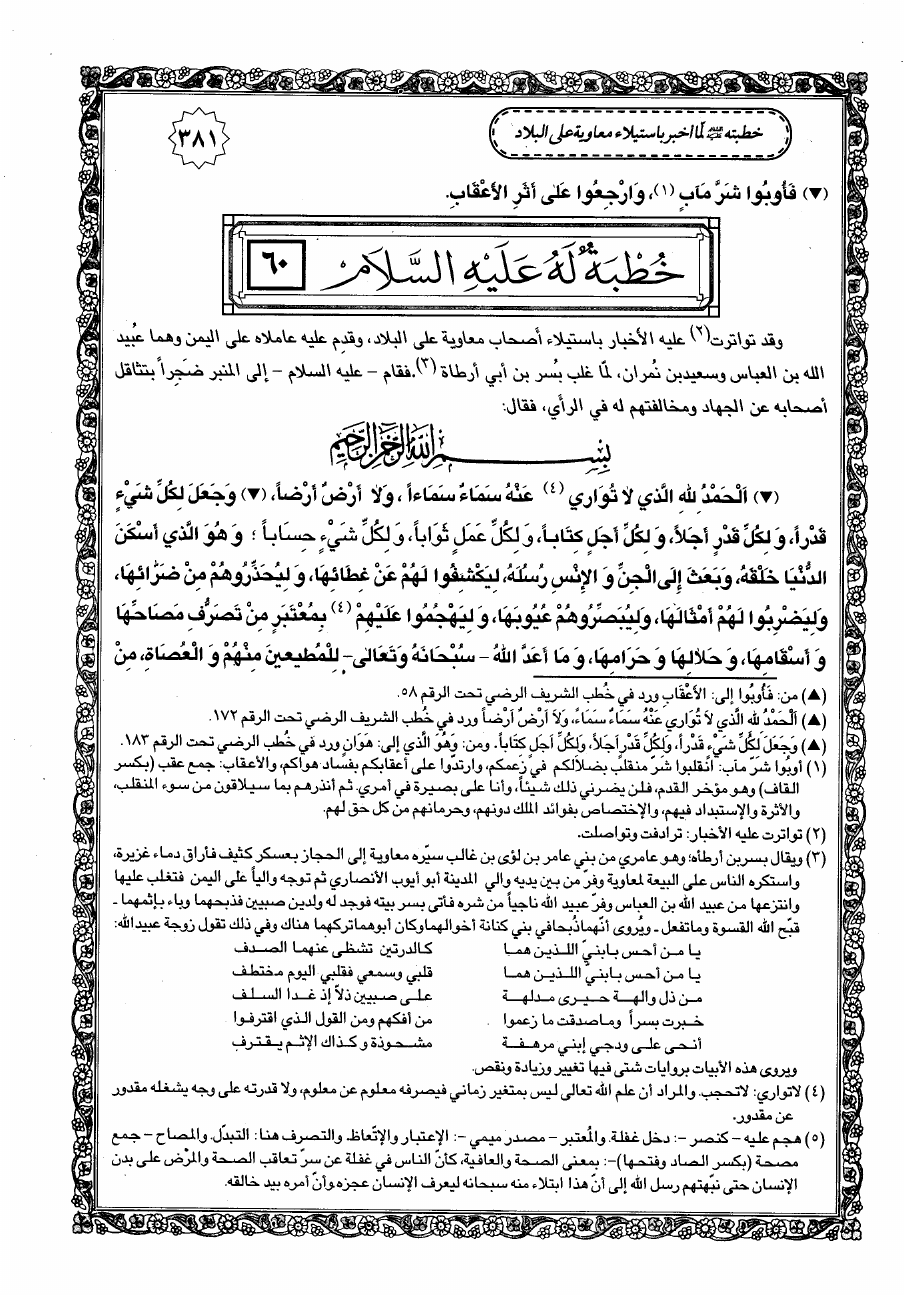 خطبته ﷺ لمّا اخبر باستيلاء معاوية على البلاد
٣٨١
(▼) فَأُوبُوا شَرَّ مَآبٍ (١)، وَارْجِعُوا عَلىٰ أَثَرِ الأَعْقَابِ.
خُطْبَةٌ لَهُ عَلَيْهِ السَّلَام
٦٠
وقد تواترت(٢) عليه الأخبار باستيلاء أصحاب معاوية على البلاد، وقدم عليه عاملاه على اليمن وهما عبُيد
الله بن العباس وسعيدبن نُمران، لمّا غلب بُسر بن أبي أرطاة (٣).فقام – عليه السلام – إلى المنبر ضَجِراً بتثاقل
أصحابه عن الجهاد ومخالفتهم له في الرأي، فقال:
بِسْمِ اللهِ الرَّحْمٰنِ الرَّحِيمِ
(▼) اَلْحَمْدُ لله الَّذي لاٰ تُوَاري (٤) عَنْهُ سَمَاءٌ سَمَاءاً، وَلاٰ أَرْضٌ أَرْضاً، (▼) وَجَعَلَ لِكُلِّ شَيْءٍ
قَدْراً، وَ لِكُلِّ قَدْرٍ أَجَلاً، وَ لِكُلِّ أَجَلٍ كِتَاباً، وَ لِكُلِّ عَمَلٍ ثَوَاباً، وَ لِكُلِّ شَيْءٍ حِسَاباً ؛ وَ هُوَ الَّذي أَسْكَنَ
الدُّنْيَا خَلْقَهُ، وَبَعَثَ إِلَى الْجِنِّ وَ الإِنْسِ رُسُلَهُ، لِيَكْشِفُوا لَهُمْ عَنْ غِطَائِهَا، وَ لِيُحَذِّرُوهُمْ مِنْ ضَرَّائِهَا،
وَ لِيَضْرِبُوا لَهُمْ أَمْثَالَهَا، وَلِيُبَصِّرُوهُمْ عُيُوبَهَا، وَ لِيَهْجُمُوا عَلَيْهِمْ (٤) بِمُعْتَبَرٍ مِنْ تَصَرُّفِ مَصَاحِّهَا
وَ أَسْقَامِهَا، وَ حَلاَلِهَا وَ حَرَامِهَا، وَ مَا أَعَدَّ اللهُ – سُبْحَانَهُ وَتَعَالىٰ – لِلْمُطيعينَ مِنْهُمْ وَ الْعُصَاةِ، مِنْ
(▲) من: فَأُوبُوا إلى: الأَعْقَابِ ورد في خُطب الشريف الرضي تحت الرقم ٥٨.
(▲) اَلْحَمْدُ لله الَّذي لاَ تُوَارِي عَنْهُ سَمَاءٌ سَمَاءً، وَلاَ أَرْضٌ أَرْضاً ورد في خُطب الشريف الرضي تحت الرقم ١٧٢.
(▲) وَجَعَلَ لِكُلِّ شَيْءٍ قَدْراً، وَلِكُلِّ قَدْرٍ أَجَلاً، وَلِكُلِّ أَجَلٍ كِتَاباً. ومن: وَهُوَ الَّذِي إلى: هَوَانٍ ورد في خطب الرضي تحت الرقم ١٨٣.
(١) أُوبُوا شرَّ مآب: اَنقلبوا شرّ منقلب بضلالكم في زعمكم، وارتدّوا على أعقابكم بفساد هواكم، والأعقاب: جمع عقب (بكسر
القاف) وهو مؤخر القدم، فلن يضرني ذلك شيئاً، وأنا على بصيرة في أمري. ثم أنذرهم بما سيلاقون من سوء المنقلب،
والأثرة والإستبداد فيهم، والإختصاص بفوائد الملك دونهم، وحرمانهم من كل حق لهم.
(٢) تواترت عليه الأخبار: ترادفت وتواصلت.
(٣) ويقال بسربن أرطأه؛ وهو عامري من بني عامر بن لؤى بن غالب سيّره معاوية إلى الحجاز بعسكر كثيف فأراق دماء غزيرة،
واستكره الناس على البيعة لمعاوية وفرّ من بين يديه والي المدينة أبو أيوب الأنصاري ثم توجه والياً على اليمن فتغلب عليها
وانتزعها من عبيد الله بن العباس وفرّ عبيد الله ناجياً من شره فأتى بسر بيته فوجد له ولدين صبيين فذبحهما وباء بإثمهما ـ
قبّح الله القسوة وماتفعل ـ ويُروى أنّهماذُبحافي بني كنانة أخوالهماوكان أبوهماتركهما هناك وفي ذلك تقول زوجة عبيدالله:
يا مـن أحس بـابنيّ اللـذيـن همـا كـالدرتين تشظى عنهمـا الصـدف
يا مـن أحس بـابنيّ اللـذيـن همـا قلبي وسمعي فقلبي اليوم مختطف
مـن ذل والهـة حيـرى مـدلهـة علـى صبيين ذلاّ إذ غـدا السلـف
خبـرت بسـراً ومـاصدقت ما زعموا من أفكهم ومن القول الـذي اقترفـوا
أنحـى علـى ودجي إبني مرهفـة مشـحوذة و كـذاك الإثـم يـقـترف
ويروى هذه الأبيات بروايات شتى فيها تغيير وزيادة ونقص.
(٤) لاتواري: لاتحجب. والمراد أن علم الله تعالى ليس بمتغير زماني فيصرفه معلوم عن معلوم، ولا قدرته على وجه يشغله مقدور
عن مقدور.
(٥) هجم عليه – كنصر –: دخل غفلة. والمُعتبر – مصدر ميمي –: الإعتبار والإتّعاظ. والتصرف هنا: التبدّل. والمصاح – جمع
مصحة (بكسر الصاد وفتحها)–: بمعنى الصحة والعافية، كأنّ الناس في غفلة عن سرّ تعاقب الصحة والمرَض على بدن
الإنسان حتى نبّهتهم رسل الله إلى أنّ هذا ابتلاء منه سبحانه ليعرف الإنسان عجزه وأنّ أمره بيد خالقه.